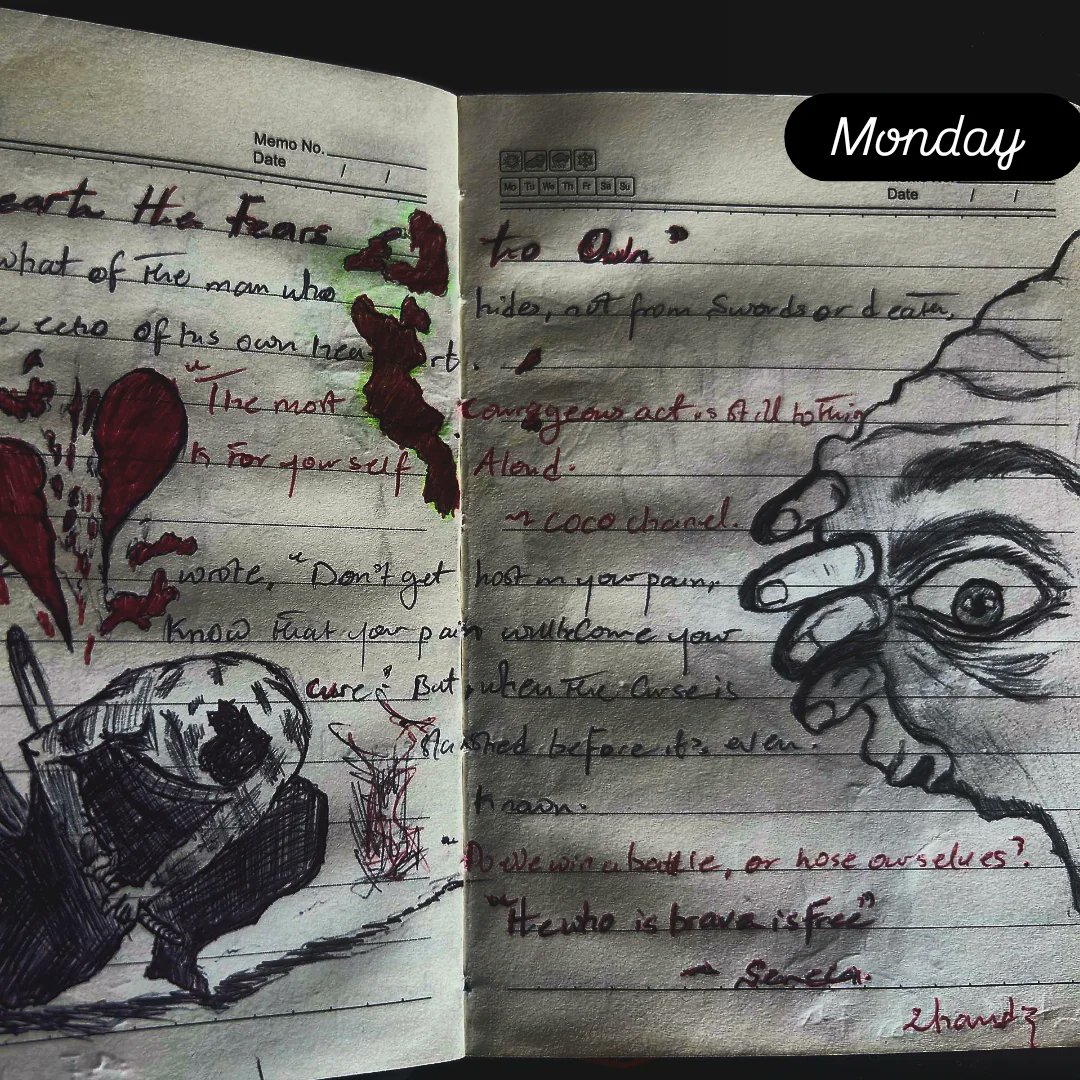 Monday
Memo No.
Date / /
Mo Tu We Th Fr Sa Su
Date / /
earth the Fears to Own"
what of The man who hides, not from Swords or death,
echo of his own heart.
"The most courageous act is still to Thin
k For yourself Aloud.
~ coco chanel.
wrote, "Don't get host in your pain,
Know That your pain will become your
cure." But, when The Curse is
before it's even
Known.
"Do we win a battle, or hose ourselves?
"He who is brave is free"
- Seneca.
2handz